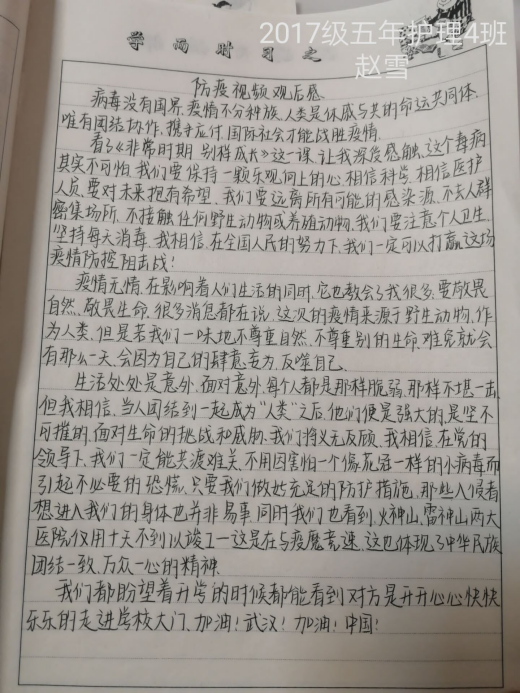 2017级五年护理4班
赵雪
学而时习之
防疫视频观后感
病毒没有国界,疫情不分种族,人类是休戚与共的命运共同体,
唯有团结协作,携手应付,国际社会才能战胜疫情.
看了《非常时期 别样成长》这一课,让我深受感触,这个毒病
其实不可怕,我们要保持一颗乐观向上的心,相信科学,相信医护
人员,要对未来抱有希望,我们要远离所有可能的感染源,不去人群
密集场所,不接触任何野生动物或养殖动物,我们要注意个人卫生,
坚持每天消毒,我相信,在全国人民的努力下,我们一定可以打赢这场
疫情防控阻击战!
疫情无情,在影响着人们生活的同时,它也教会了我很多:要敬畏
自然、敬畏生命,很多消息都在说,这次的疫情来源于野生动物,作
为人类,但是若我们一味地不尊重自然,不尊重别的生命,难免就会
有那么一天,会因为自己的肆意妄为,反噬自己.
生活处处是意外,面对意外,每个人都是那样脆弱,那样不堪一击,
但我相信,当人团结到一起成为“人类”之后,他们便是强大的,是坚不
可摧的,面对生命的挑战和威胁,我们将义无反顾,我相信,在党的
领导下,我们一定能共渡难关,不用因害怕一个像花冠一样的小病毒而
引起不必要的恐慌,只要我们做好充足的防护措施,那些入侵者
想进入我们的身体也并非易事,同时我们也看到,火神山,雷神山两大
医院,仅用十天不到以竣工一这是在与疫魔竞速,这也体现了中华民族
团结一致、万众一心的精神.
我们都盼望着开学的时候都能看到对方是开开心心快快
乐乐的走进学校大门、加油!武汉!加油!中国!